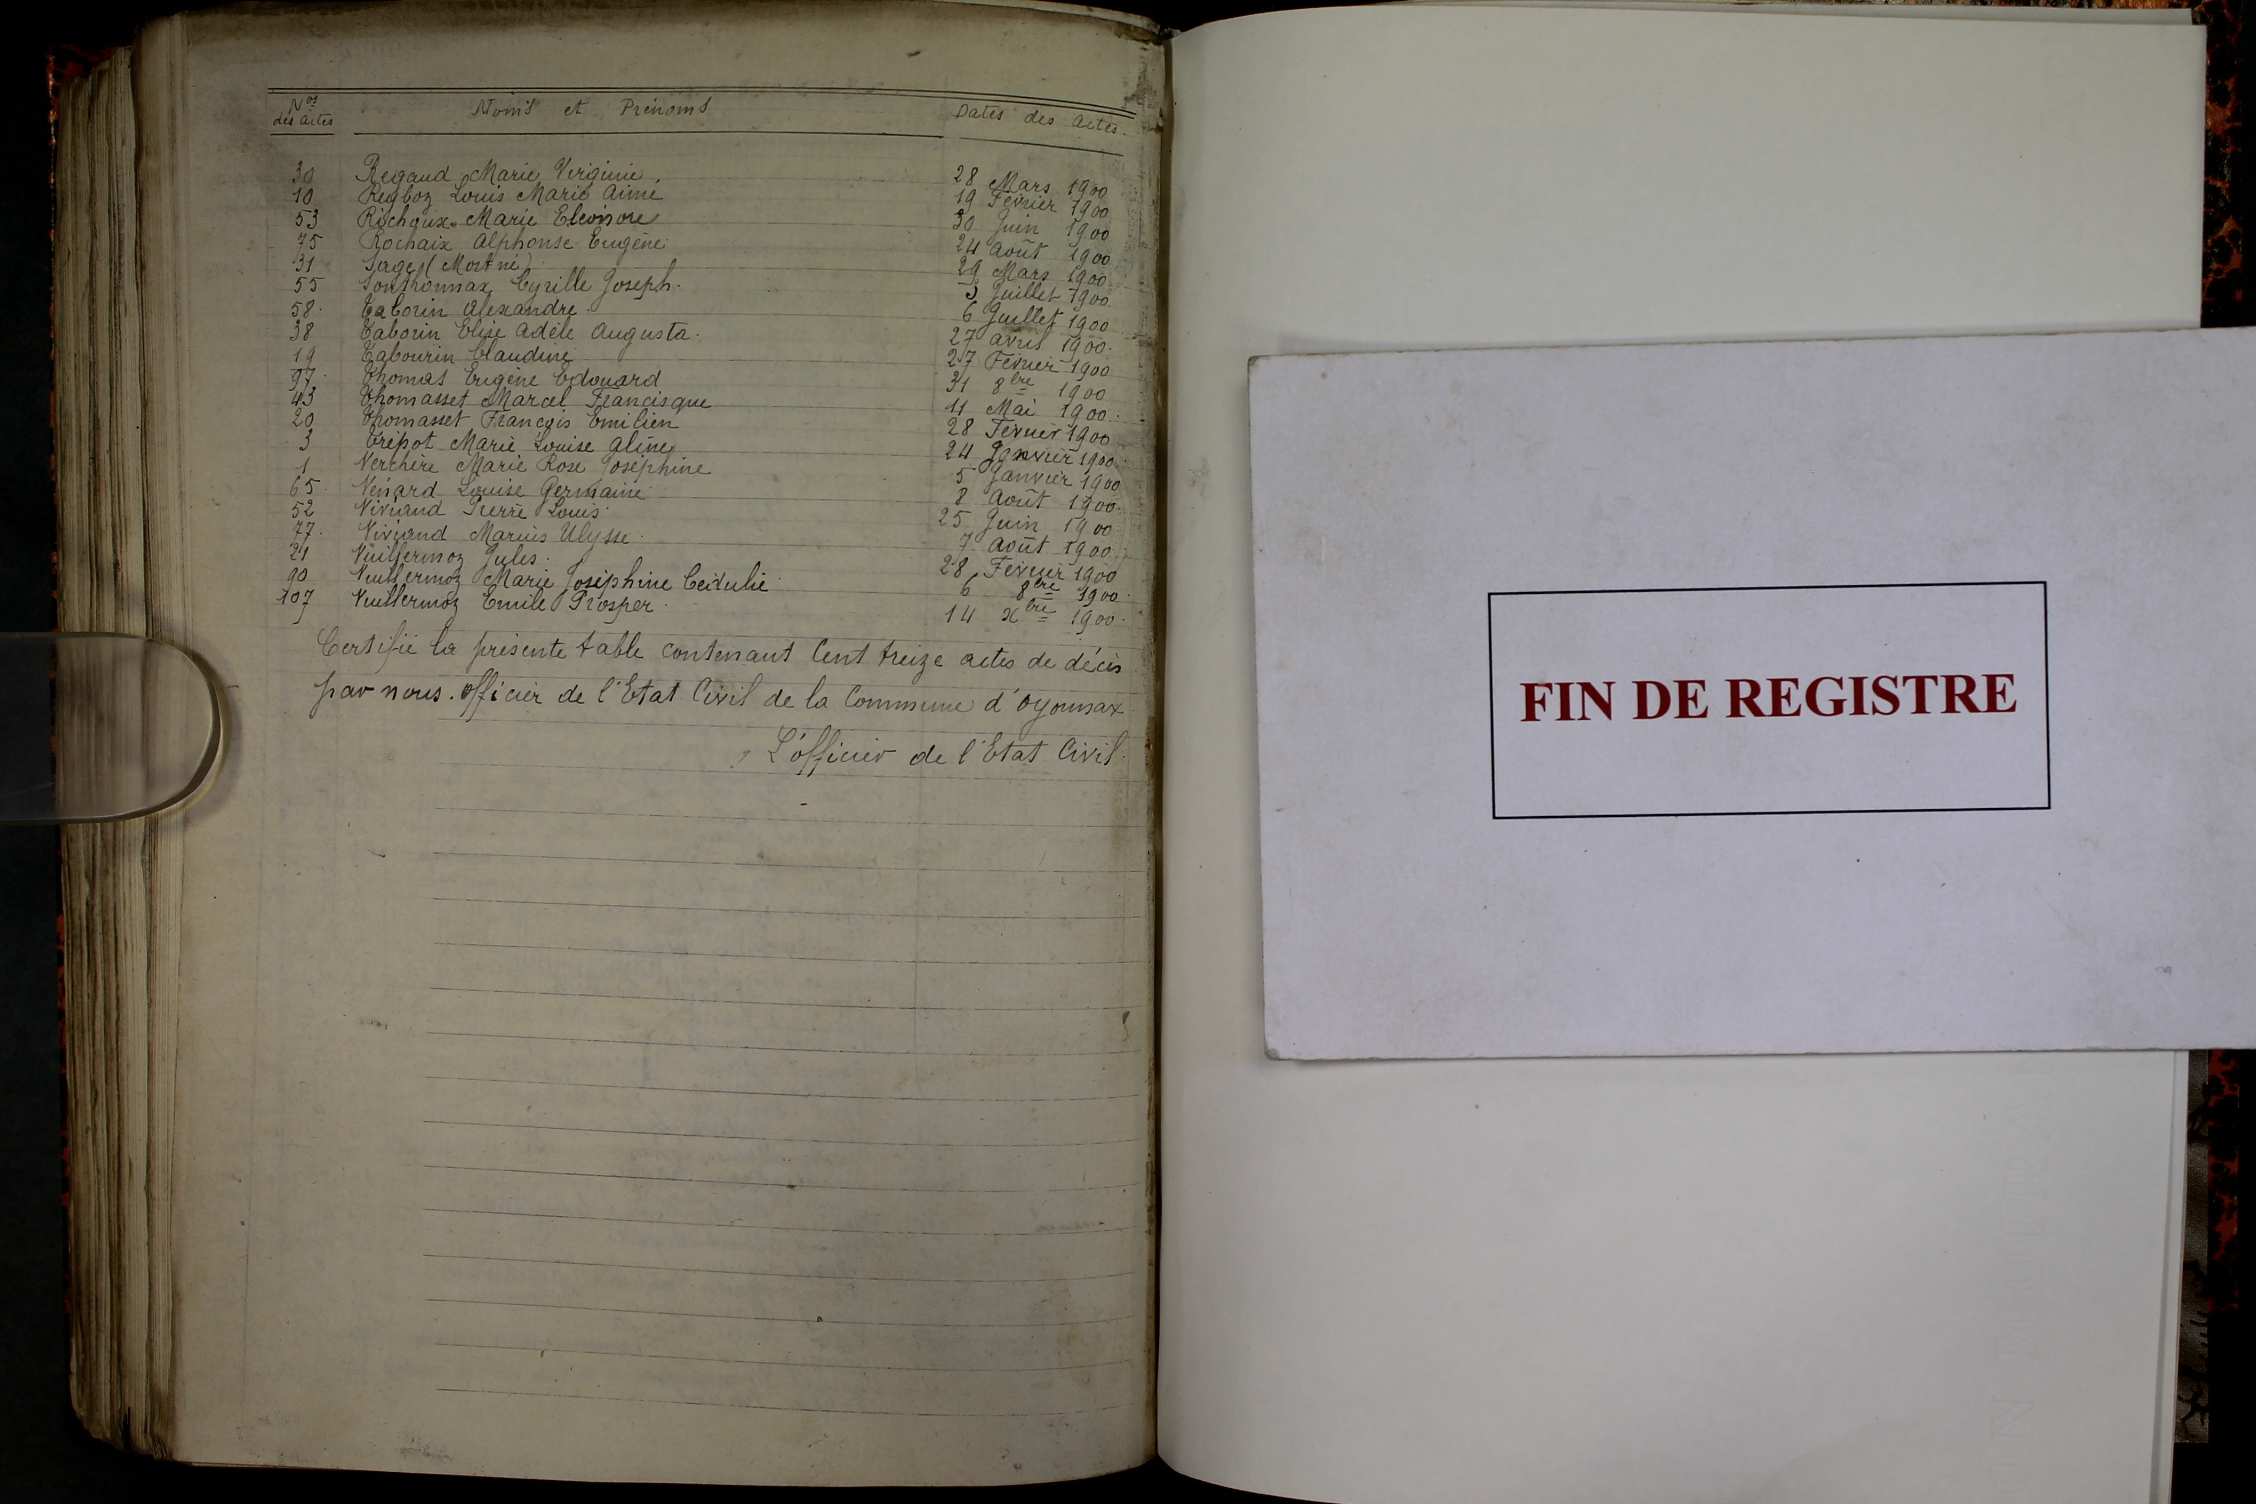 Nos des actes Noms et Prénoms Dates des Actes.
30 Regaud Marie Virginie. 28 Mars 1900
10 Reyboz Louis Marie Aimé 19 Février 1900
53 Rochoux Marie Eléonore 30 Juin 1900
75 Rochaix Alphonse Eugène 24 Août 1900
31 Sage (Mort né) 29 Mars 1900
55 Sonthonnax Cyrille Joseph. 3 Juillet 1900
58. Taborin Alexandre. 6 Juillet 1900
38 Taborin Elise Adèle Augusta. 27 Avril 1900.
19 Tabourin Claudine 27 Février 1900
97. Thomas Eugène Edouard 31 8bre 1900
43 Thomasset Marcel Francisque 11 Mai 1900.
20 Thomasset François Emilien 28 Février 1900
3 Trépot Marie Louise Aline 24 Janvier 1900.
1 Verchère Marie Rose Joséphine 5 Janvier 1900
65. Veinard Louise Germaine. 8 Août 1900.
52 Viviand Pierre Louis. 25 Juin 1900
77. Viviand Marius Ulysse. 7 Août 1900
21 Vuillermoz Jules. 28 Février 1900
90 Vuillermoz Marie Joséphine Cédulie. 6 8bre 1900.
107 Vuillermoz Emile Prosper. 14 xbre 1900.
Certifié la présente table contenant Cent treize actes de décès
par nous. officier de l'Etat Civil de la Commune d'Oyonnax
L'officier de l'Etat Civil.
FIN DE REGISTRE